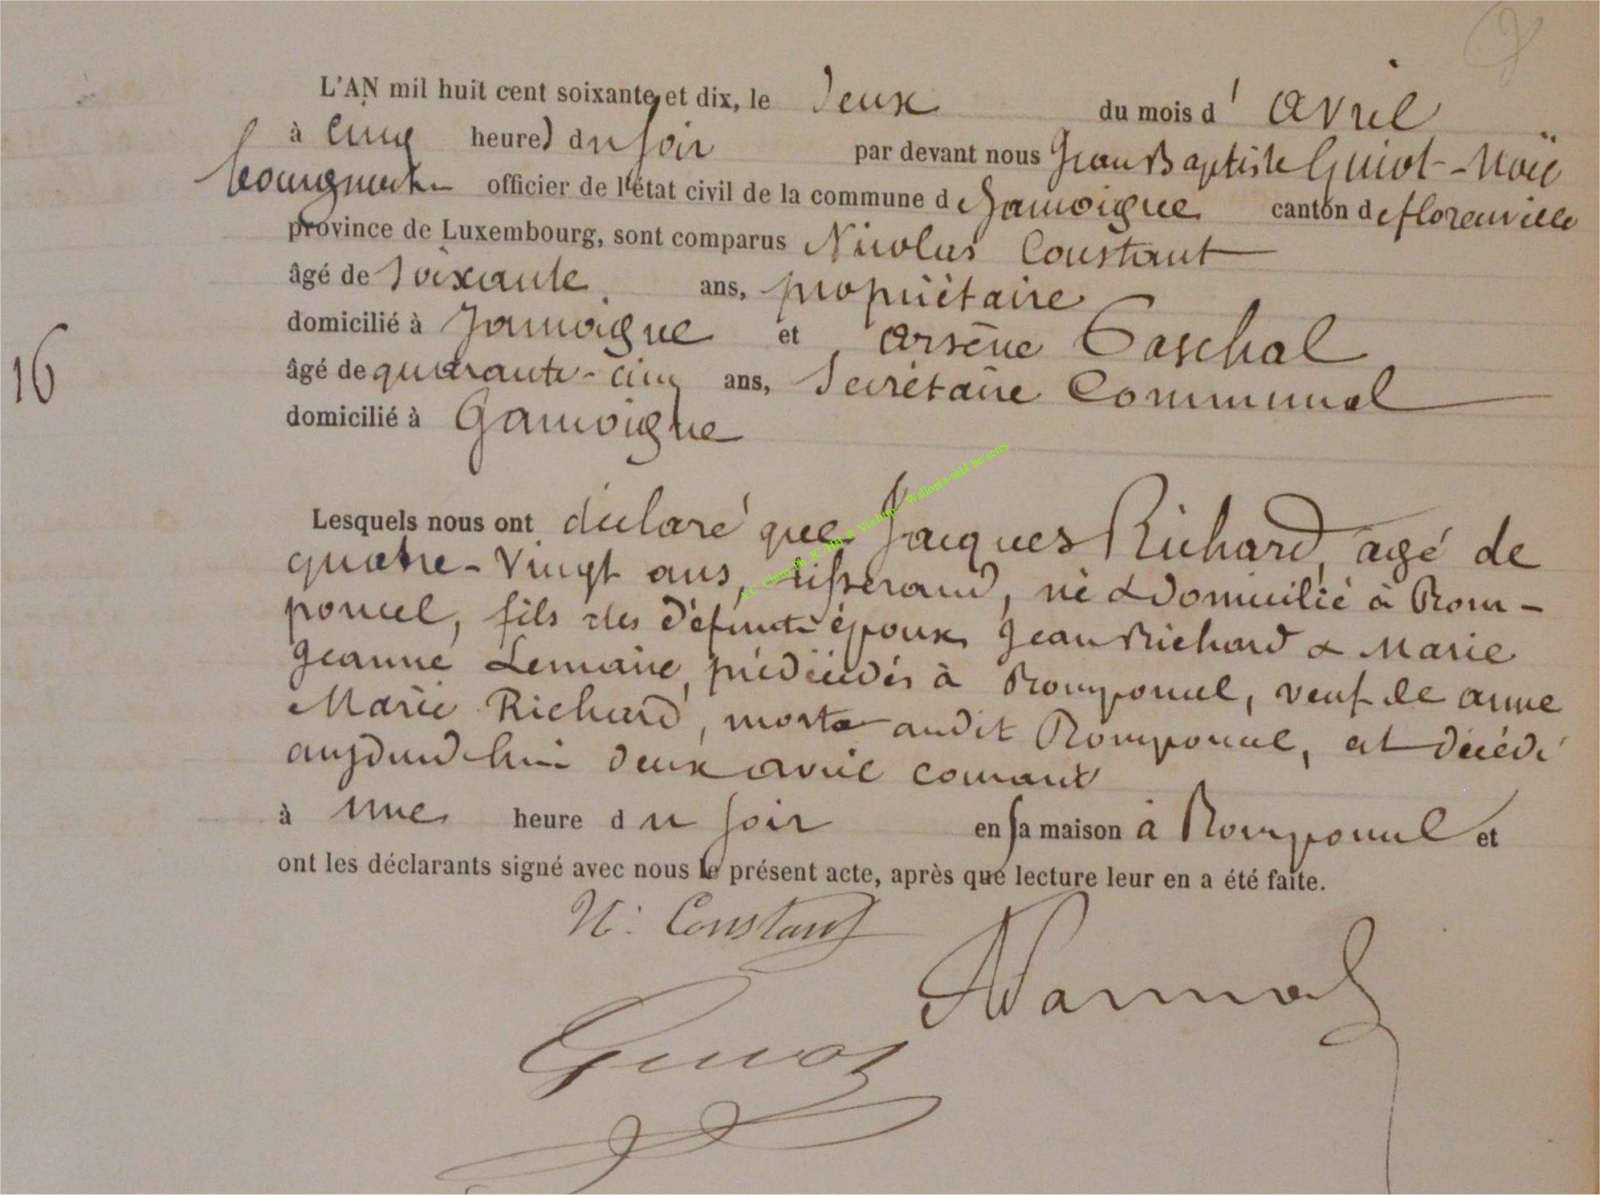 L'AN mil huit cent soixante et dix, le deux du mois d' avril
à cinq heures du soir par devant nous Jean Baptiste Guiot-Noël
bourgmestre officier de l'état civil de la commune de Jamoigne canton de florenville
province de Luxembourg, sont comparus Nicolas Constant
âgé de soixante ans, propriétaire
domicilié à Jamoigne et arsène Paschal
16
âgé de quarante-cinq ans, Secrétaire Communal
domicilié à Jamoigne
Lesquels nous ont déclaré que Jacques Richard, agé de
quatre-vingt ans, tisserand, né & domicilié à Rom-
poncel, fils des défunts époux Jean Richard & Marie
Jeanne Lemaire, prédécédés à Romponcel, veuf de anne
Marie Richard, morte audit Romponcel, est décédé
aujourd'hui deux avril courant
à une heure du soir en sa maison à Romponcel et
ont les déclarants signé avec nous le présent acte, après que lecture leur en a été faite.
N. Constant
Guiot